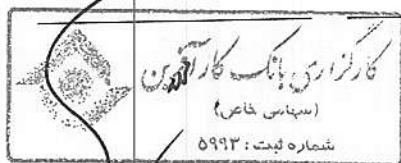 کارگزاری بانک کارآفرین
(سهامی خاص)
شماره ثبت: ۵۹۹۳